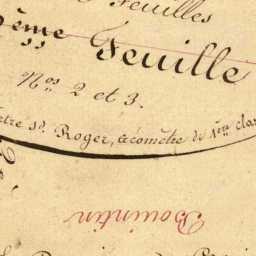 Feuilles
ème Feuille
Nos 2 et 3.
Roger, Géomètre de 1ère clas
Bouintin